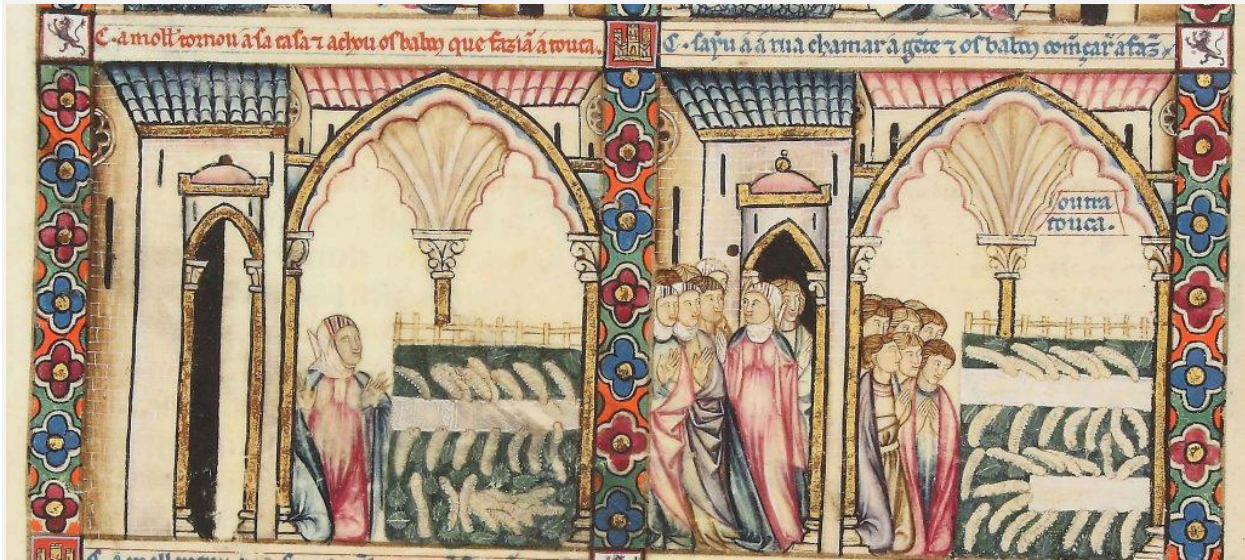 C. a moll' tornou a sa casa ⁊ achou os babos que faziã a touca.
C. sayu á a rua chamar a gẽte ⁊ os babos comẽçar' a faz'
outra
touca.